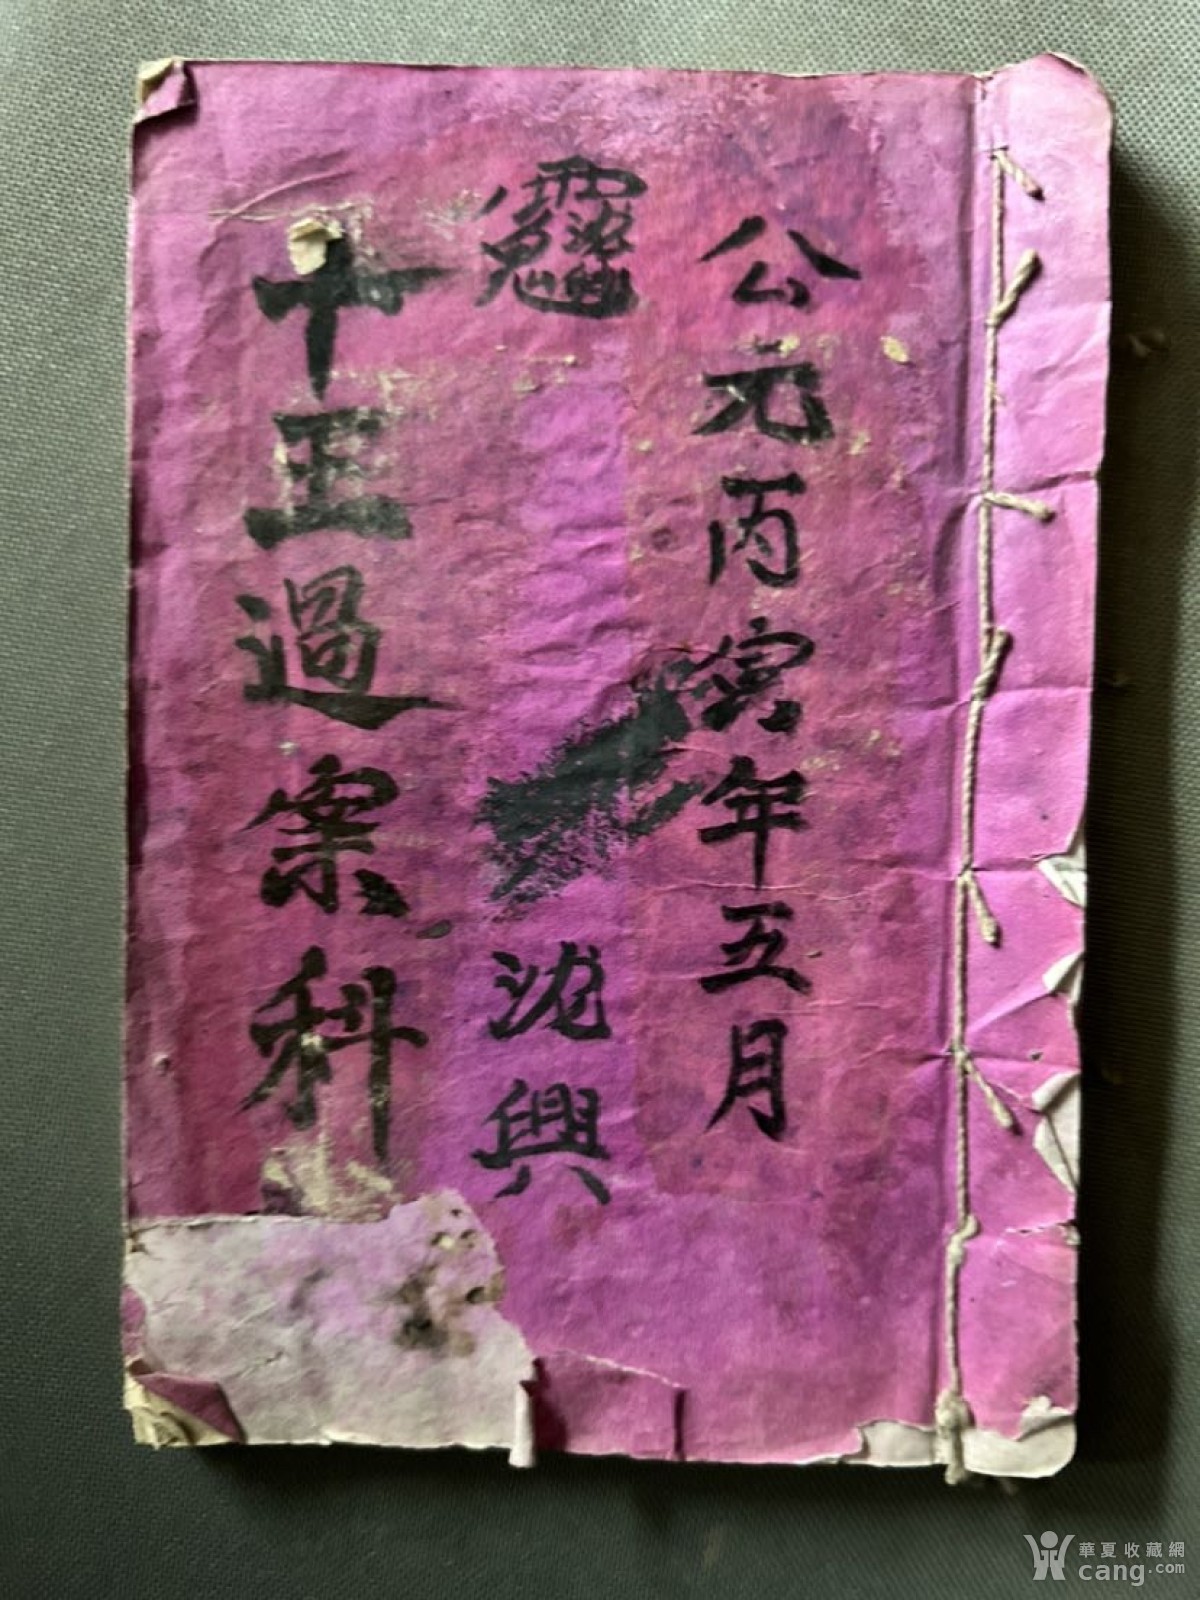 公元丙寅年五月
沈興
十王過案科
華夏收藏網
cang.com